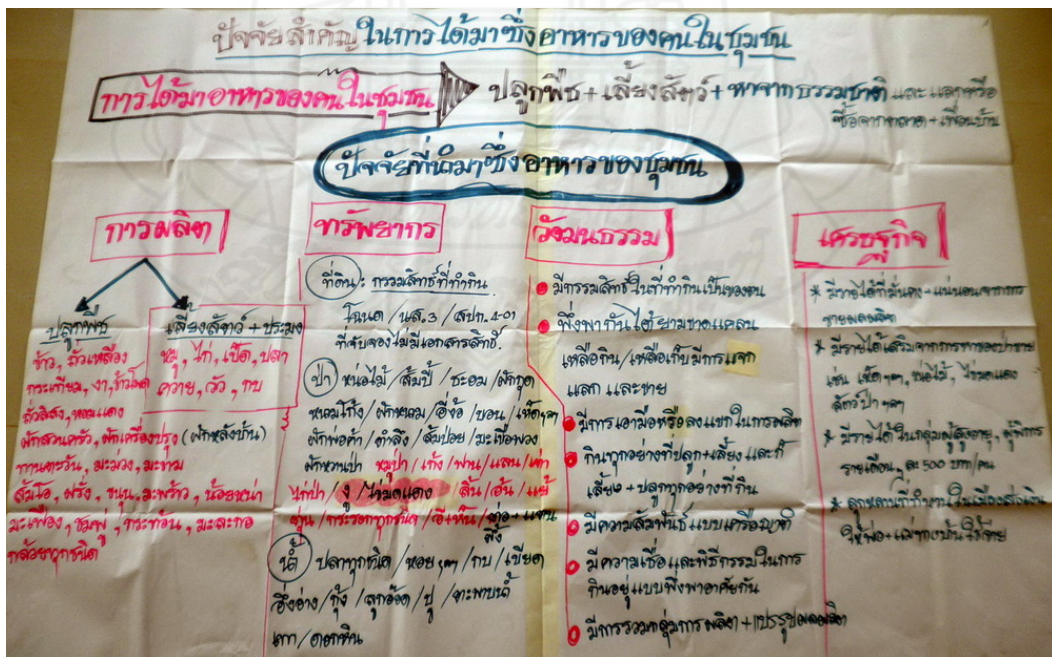 ปัจจัยสำคัญในการได้มาซึ่งอาหารของคนในชุมชน
การได้มาอาหารของคนในชุมชน
ปลูกพืช + เลี้ยงสัตว์ + หาจากธรรมชาติ และ แลกหรือ
ซื้อจากตลาด + เพื่อนบ้าน
ปัจจัยที่นำมาซึ่งอาหารของชุมชน
การผลิต
ปลูกพืช
ข้าว, ถั่วเหลือง
กระเทียม, งา, ข้าวโพด
ถั่วลิสง, หอมแดง
ผักสวนครัว, ผักเครื่องปรุง (ผักหลังบ้าน)
ทานตะวัน, มะม่วง, มะขาม
ส้มโอ, ฝรั่ง, ขนุน, มะพร้าว, น้อยหน่า
มะเฟือง, ชมพู่, กระท้อน, มะละกอ
กล้วยทุกชนิด
เลี้ยงสัตว์ + ประมง
หมู, ไก่, เป็ด, ปลา
ควาย, วัว, กบ
ทรัพยากร
ที่ดิน/: กรรมสิทธิ์ที่ทำกิน
โฉนด / นส.3 / สปก.4-01
ที่จับจองไม่มีเอกสารสิทธิ์.
ป่า หน่อไม้ / ส้มปี้ / ชะอม / ผักกูด
หนามโค้ง / ผักหนาม / อี่ข้อ / บอน / เห็ดๆลๆ
ผักพ่อค้า / ตำลึง / ส้มป่อย / มะเขือพวง
ผักหวานป่า หมูป่า / เก้ง / ฟาน / แลน / เต่า
ไก่ป่า / งู / ไข่มดแดง / ลิ้น / อ้น / แย้
ตุ่น / กระรอกทุกชนิด / อีเห็น / ต่อ + แตน
ผึ้ง
น้ำ ปลาทุกชนิด / หอย ๆลๆ / กบ / เขียด
อึ่งอ่าง / กุ้ง / ลูกอ๊อด / ปู / ตะพาบน้ำ
เทา / ดอกหิน
วัฒนธรรม
มีกรรมสิทธิ์ในที่ทำกินเป็นของตน
พึ่งพากันได้ยามขาดแคลน
เหลือกิน / เหลือเก็บมีการแจก
แลก และขาย
มีการเอามื้อหรือลงแขกในการผลิต
กินทุกอย่างที่ปลูก + เลี้ยง และก็
เลี้ยง + ปลูกทุกอย่างที่กิน
มีความสัมพันธ์แบบเครือญาติ
มีความเชื่อและพิธีกรรมในการ
กินอยู่แบบพึ่งพาอาศัยกัน
มีการรวมกลุ่มการผลิต + แปรรูปผลผลิต
เศรษฐกิจ
* มีรายได้ที่มั่นคง + แน่นอนจากการ
ขายผลผลิต
* มีรายได้เสริมจากการหาของป่าขาย
เช่น เห็ดๆลๆ, หน่อไม้, ไข่มดแดง
สัตว์ป่า ๆลๆ
* มีรายได้ในกลุ่มผู้สูงอายุ, ผู้พิการ
รายเดือน ๆ ละ 500 บาท/คน
* ลูกหลานที่ทำงานในเมืองส่งเงิน
ให้พ่อ + แม่ทางบ้านใช้จ่าย